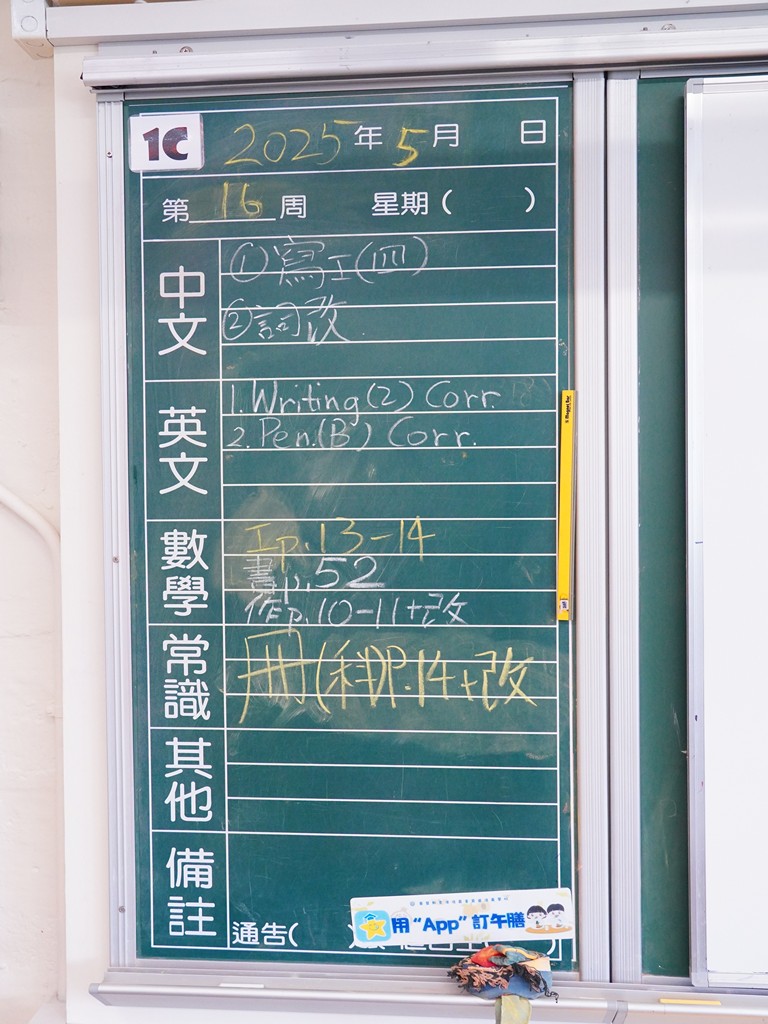 1C 2025年 5月 日
第 16 周 星期( )
中文
①寫工(四)
②詞改
英文
1. Writing(2) Corr.
2. Pen.(B) Corr.
數學
工p.13-14
書p.52
作p.10-11+改
常識
冊(科)P.14+改
其他
備註
用“App”訂午膳
通告(